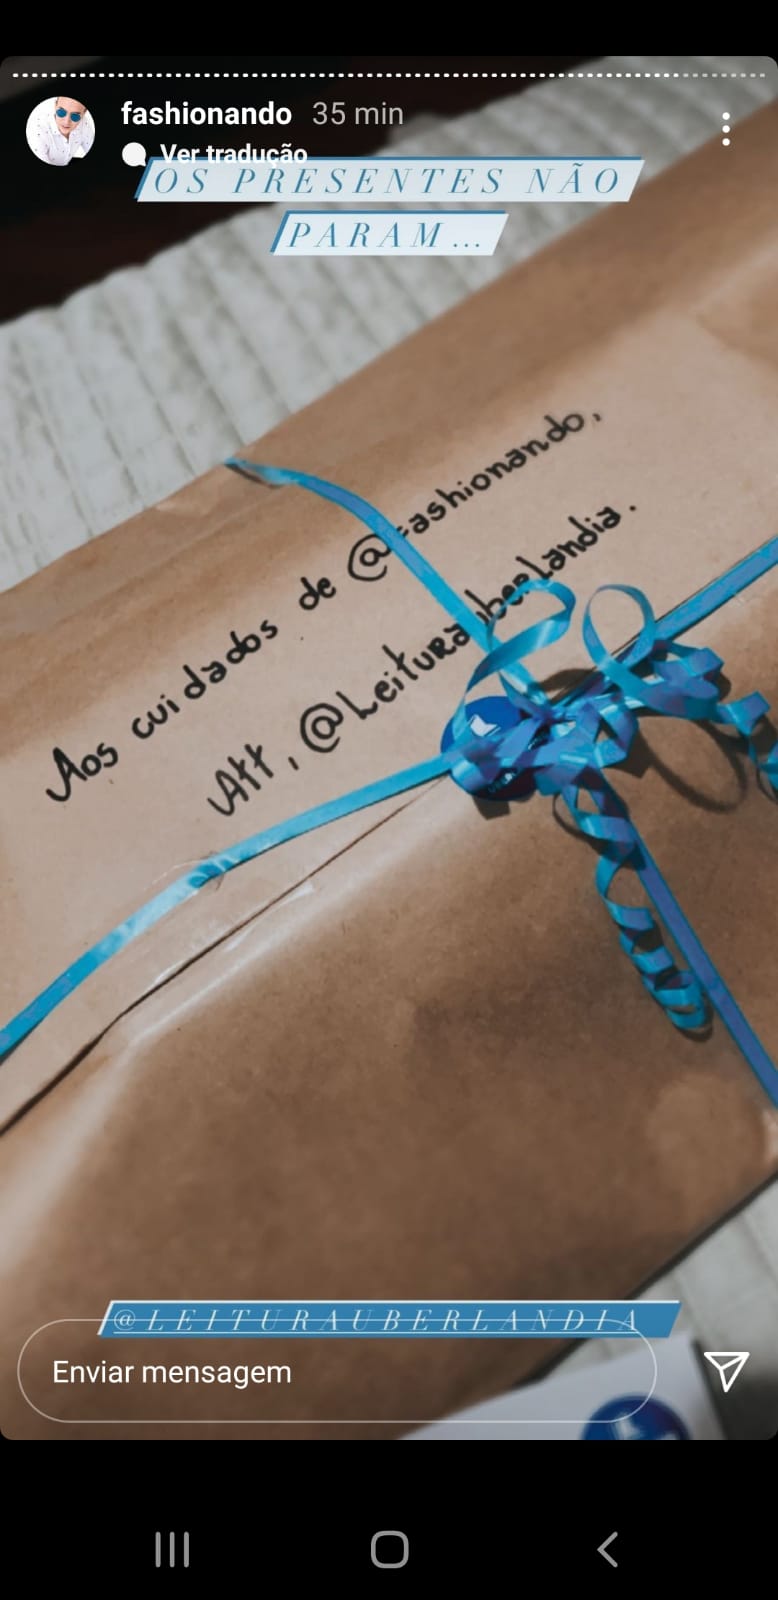 fashionando 35 min
Ver tradução
OS PRESENTES NÃO
PARAM...
Aos cuidados de @fashionando,
Att, @Leiturauberlandia.
@LEITURAUBERLANDIA
Enviar mensagem